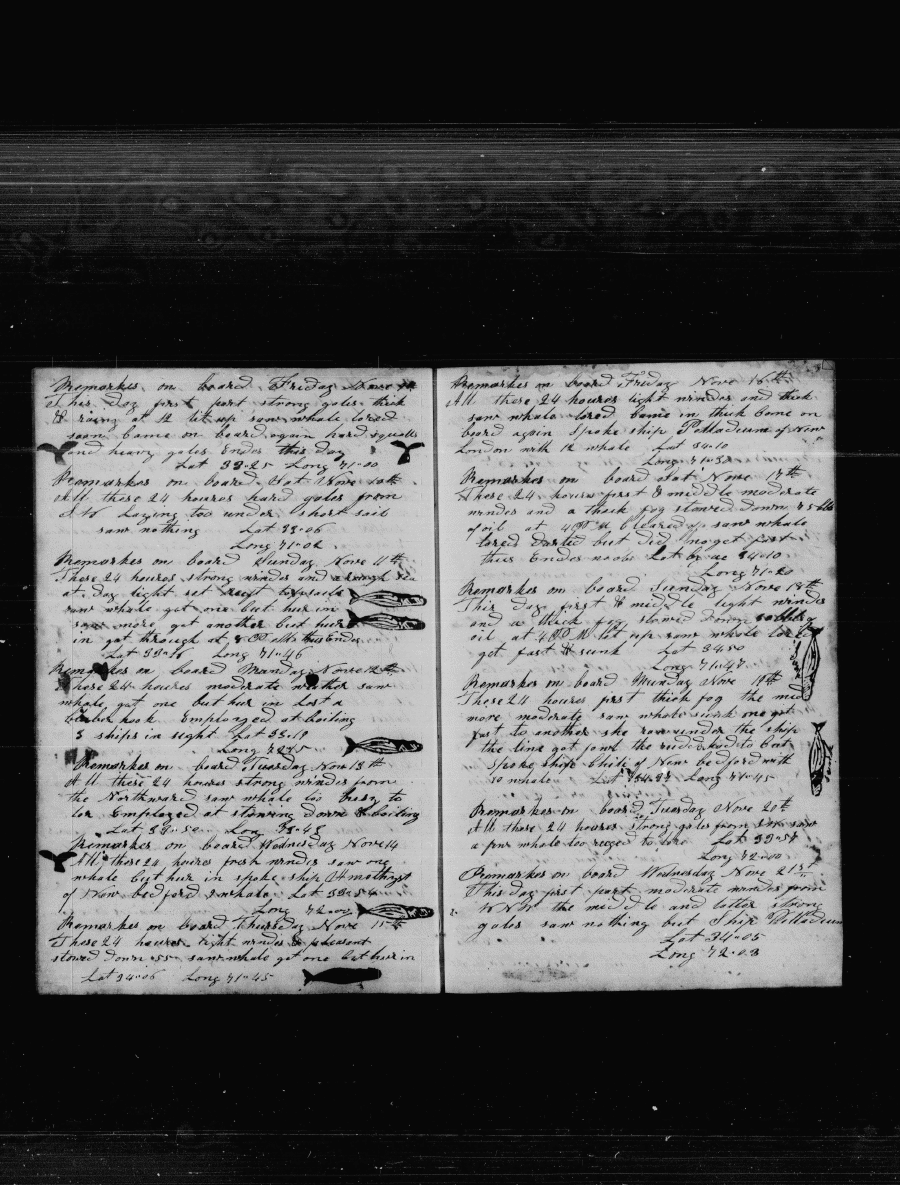 Remarkes on board Friday Nove
This day first part strong gales thick
& rainy at 12 lit up saw whale lored
soon came on board again hard squalls
and heavy gales Ends this day
Lat 33-25 Long 71-00
Remarkes on board Sat Nove 10th
All these 24 houres hard gales from
Laying too under short sail
saw nothing Lat 33-06
Long 71-02
Remarkes on board Sunday Nove 11th
These 24 houres strong windes and a rough sea
at day light set topsails
saw whale got one but hur in
saw more got another but hur
in got through at 8 PM thus Ends
Lat 33-16 Long 71-46
Remarkes on board Munday Nove 12th
These 24 houres moderate wether saw
whale got one but hur in Lost a
blubber hook Employed at boiling
3 ships in sight Lat 33-19
Long
Remarkes on board Tuesday Nov 13th
All these 24 houres strong windes from
the Northward saw whale too busy to
lor Employed at stowing down & boiling
Lat 33-50 Long
Remarkes on board Wednesday Nov 14
All these 24 houres fresh windes saw one
whale but hur in spoke ship
of New bedford 2 whale Lat 33-54
Long 72-00
Remarkes on board Thursday Nove 15th
These 24 houres light windes & pleasent
stowed down 55 saw whale got one but hur in
Lat 34-06 Long 71-45
Remarkes on board Friday Nove 16th
All these 24 houres light windes and thick
saw whale lored came in thick come on
board again Spoke ship Palladium of New
London with 12 whale Lat 34-10
Long 71-30
Remarkes on board Sat Nove 17th
These 24 houres first & middle moderate
windes and a thick fog stowed down 75 bbls
of oil at 4 PM Cleared up saw whale
lored darted but did no get fast
thus Endes Lat by 34-10
Long 71-20
Remarkes on board Sunday Nove 18th
This day first & middle light windes
and a thick fog stowed down
oil at 4 PM lit up saw whale lored
got fast & sunk Lat 34-50
Long 71-47
Remarkes on board Munday Nove 19th
These 24 houres first thick fog the mid
more moderate saw whale sunk one got
fast to another she ran under the ship
the line got fowl the rudder had to cut
Spoke ship of New bedford with
10 whale Lat Long 71-45
Remarkes on board Tuesday Nove 20th
All these 24 houres strong gales from saw
a few whale too ruged to lore Lat 33-57
Long 72-00
Remarkes on board Wednesday Nove 21st
This day first part moderate windes from
WNW the middle and latter strong
gales saw nothing but Ship Palladium
Lat 34-05
Long 72-03